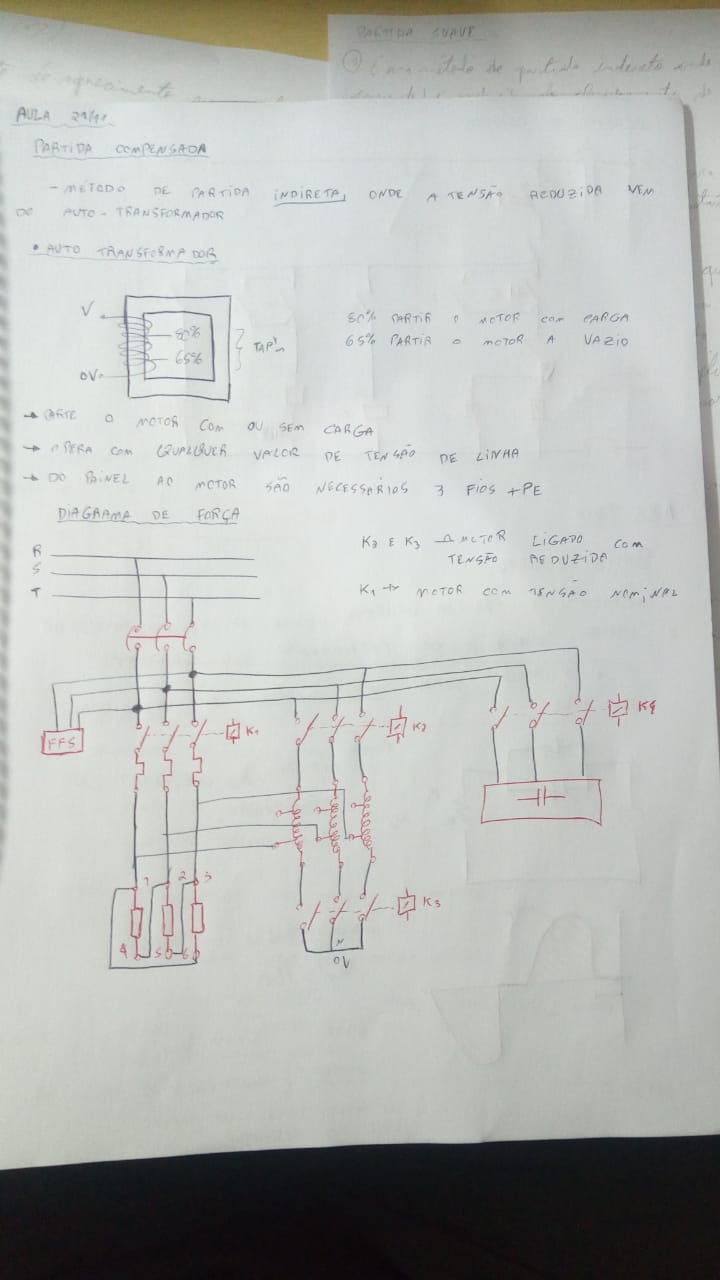 PARTIDA SUAVE
① É um método de partida indireta onde
de aquecimento
AULA 21/11
PARTIDA COMPENSADA
- MÉTODO DE PARTIDA INDIRETA, ONDE A TENSÃO REDUZIDA VEM
DO AUTO-TRANSFORMADOR
• AUTO TRANSFORMADOR
V
80%
65%
0V
TAP's
80% PARTIR O MOTOR COM CARGA
65% PARTIR O MOTOR A VAZIO
→ PARTE O MOTOR COM OU SEM CARGA
→ OPERA COM QUALQUER VALOR DE TENSÃO DE LINHA
→ DO PAINEL AO MOTOR SÃO NECESSÁRIOS 3 FIOS + PE
DIAGRAMA DE FORÇA
K2 E K3 → MOTOR LIGADO COM
TENSÃO REDUZIDA
K1 → MOTOR COM TENSÃO NOMINAL
R
S
T
FFS
K1
K2
K4
1 2 3
4 5 6
K3
N
0V